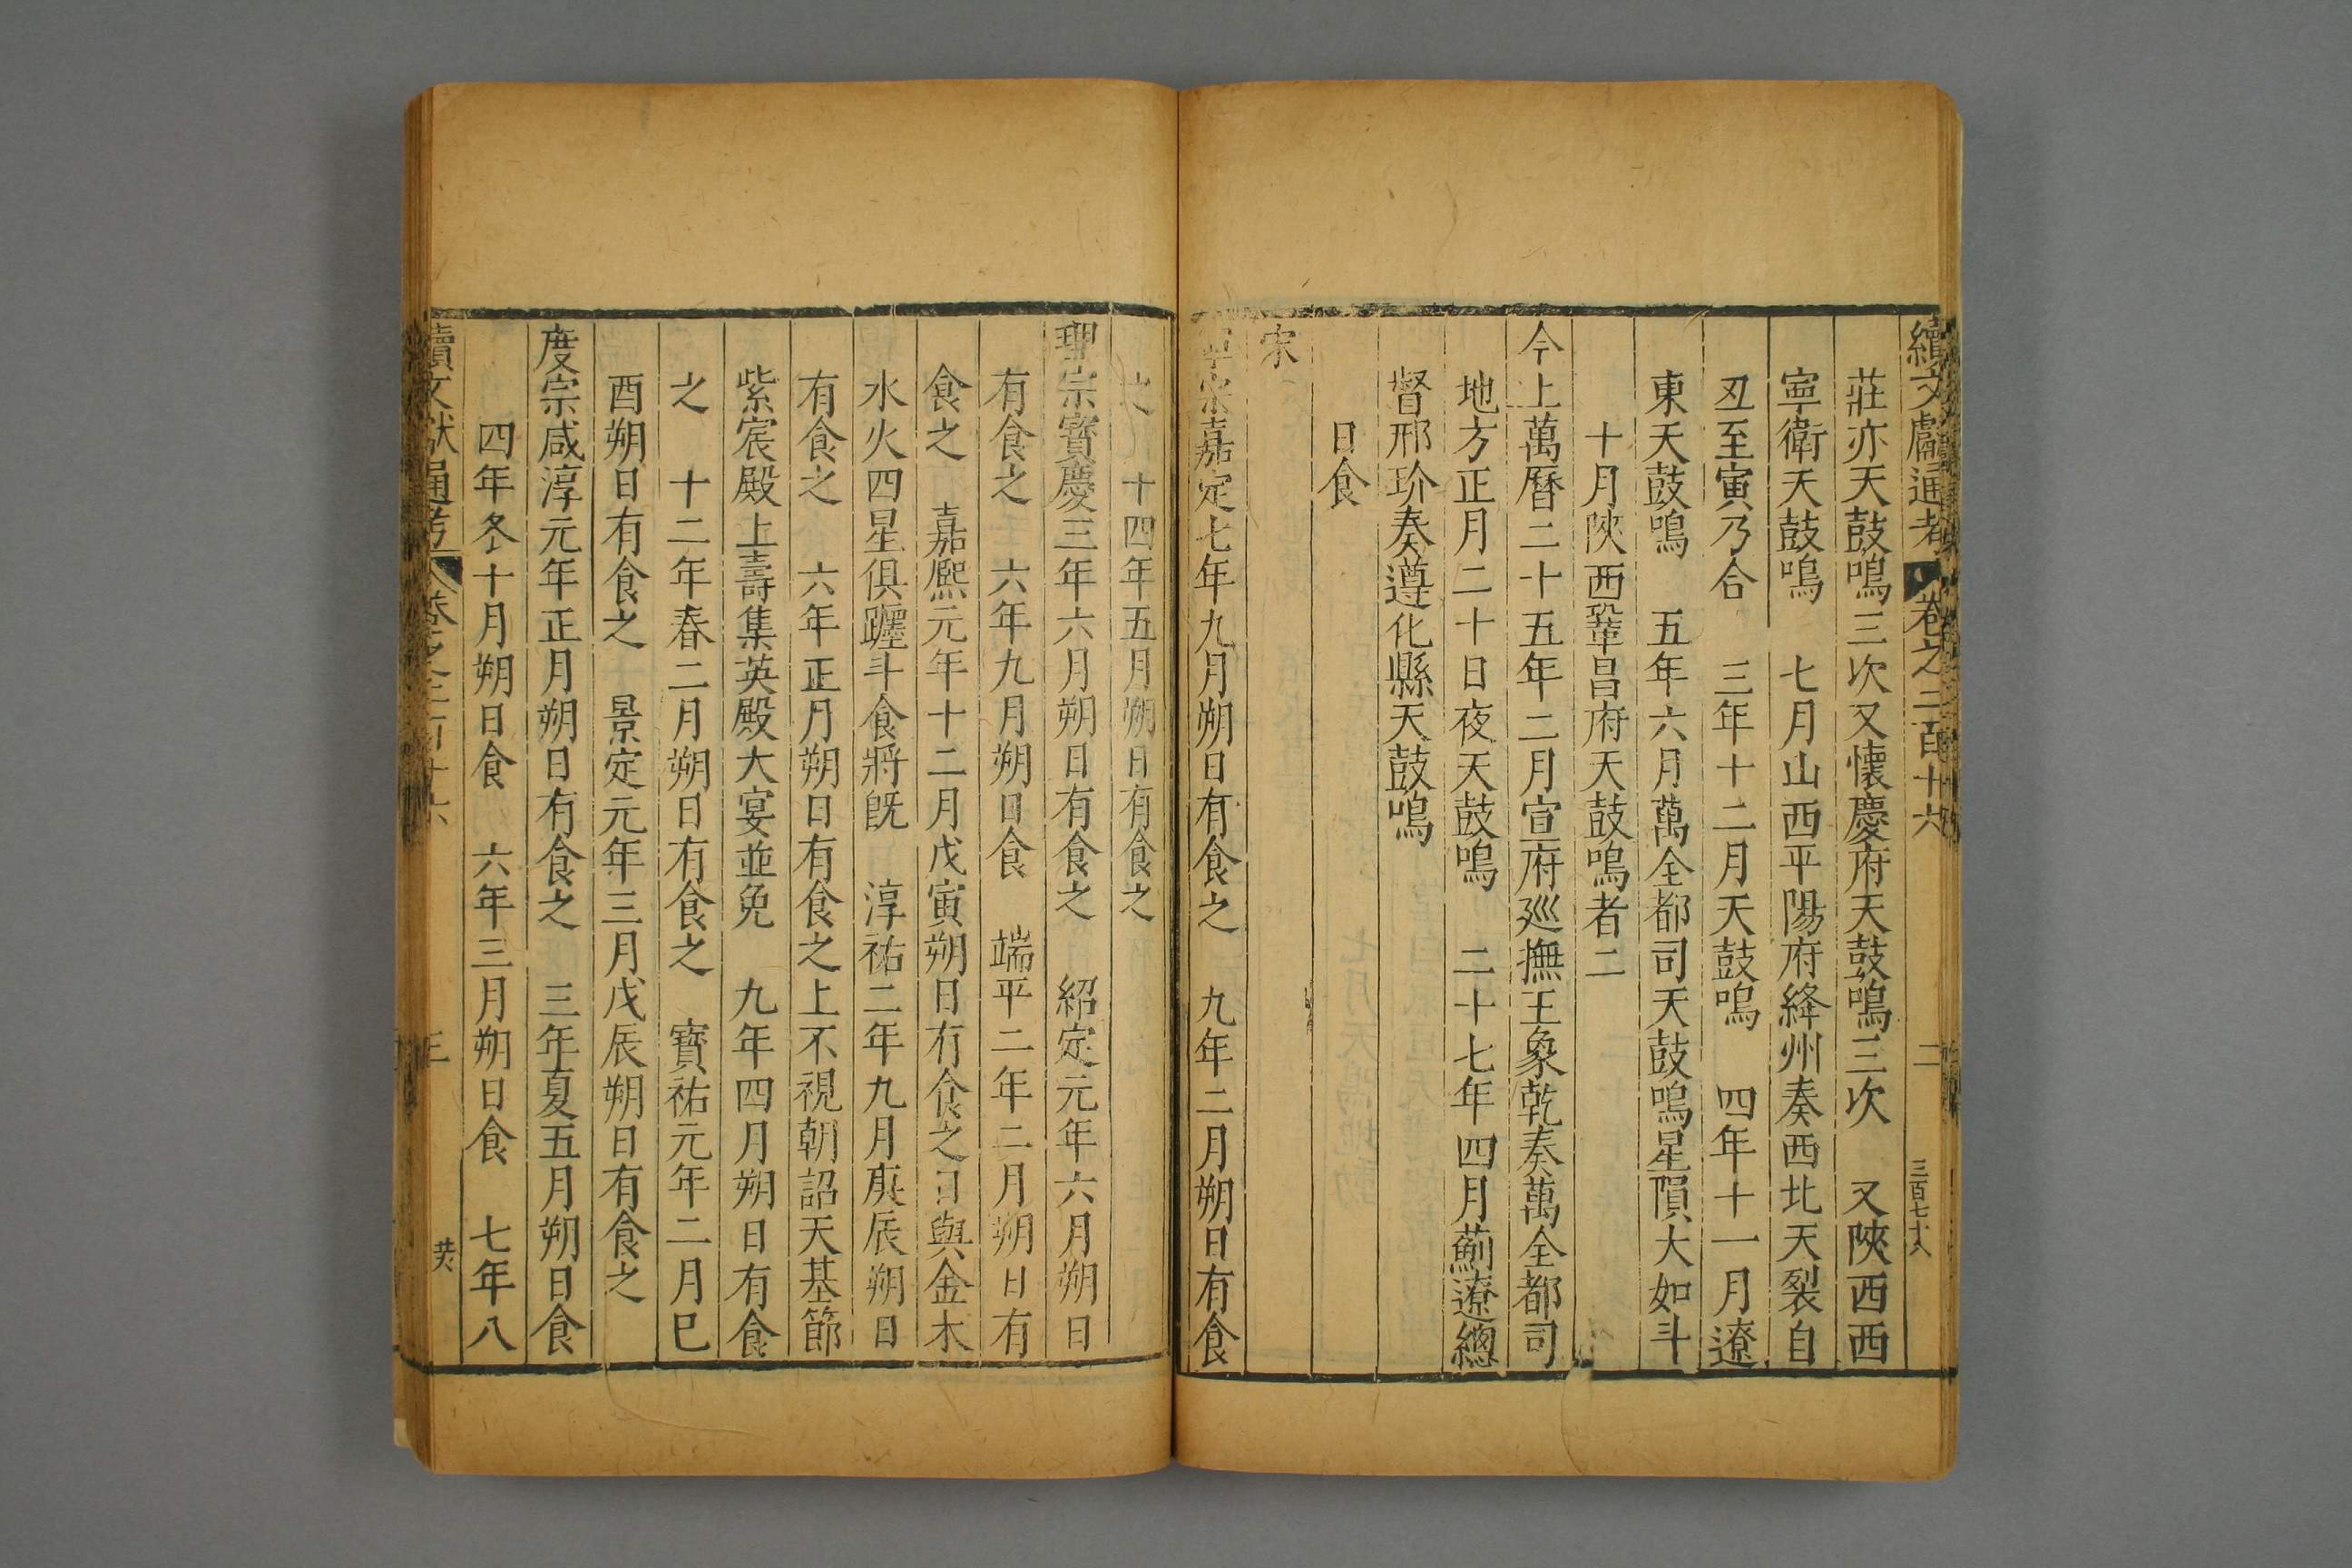 續文獻通考 卷之二百十六 二 三百七十八
莊亦天鼓鳴三次又懷慶府天鼓鳴三次 又陝西西
寧衛天鼓鳴 七月山西平陽府絳州奏西北天裂自
丑至寅乃合 三年十二月天鼓鳴 四年十一月遼
東天鼓鳴 五年六月萬全都司天鼓鳴星隕大如斗
十月陝西鞏昌府天鼓鳴者二
今上萬曆二十五年二月宣府廵撫王象乾奏萬全都司
地方正月二十日夜天鼓鳴 二十七年四月薊遼總
督邢玠奏遵化縣天鼓鳴
日食
宋
寧宗嘉定七年九月朔日有食之 九年二月朔日有食
之 十四年五月朔日有食之
理宗寳慶三年六月朔日有食之 紹定元年六月朔日
有食之 六年九月朔日食 端平二年二月朔日有
食之 嘉熈元年十二月戊寅朔日有食之日與金木
水火四星俱躔斗食將旣 淳祐二年九月庚辰朔日
有食之 六年正月朔日有食之上不視朝詔天基節
紫宸殿上壽集英殿大宴並免 九年四月朔日有食
之 十二年春二月朔日有食之 寳祐元年二月巳
酉朔日有食之 景定元年三月戊辰朔日有食之
度宗咸淳元年正月朔日有食之 三年夏五月朔日食
四年冬十月朔日食 六年三月朔日食 七年八
續文獻通考 卷之二百十六 三